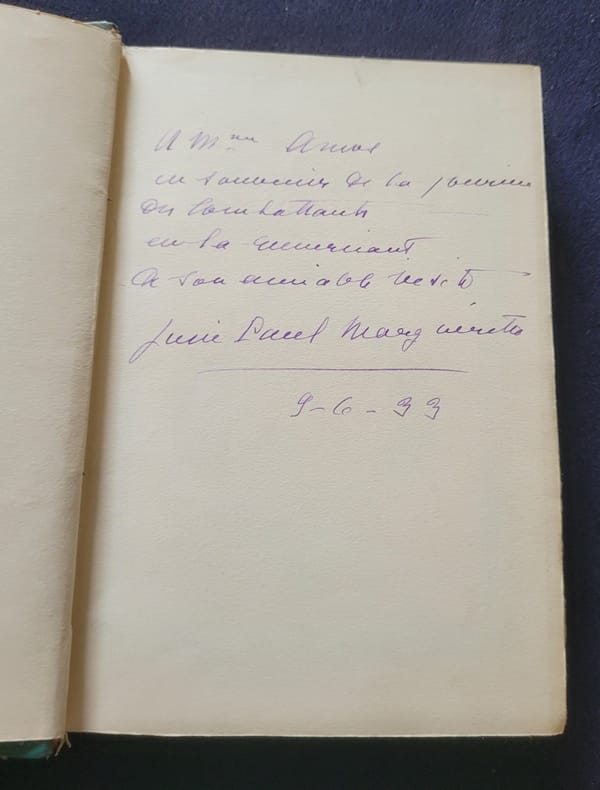 A Mme
en souvenir de la journée
des Combattants
en la remerciant
de son aimable visite
Paul Margueritte
9-6-33